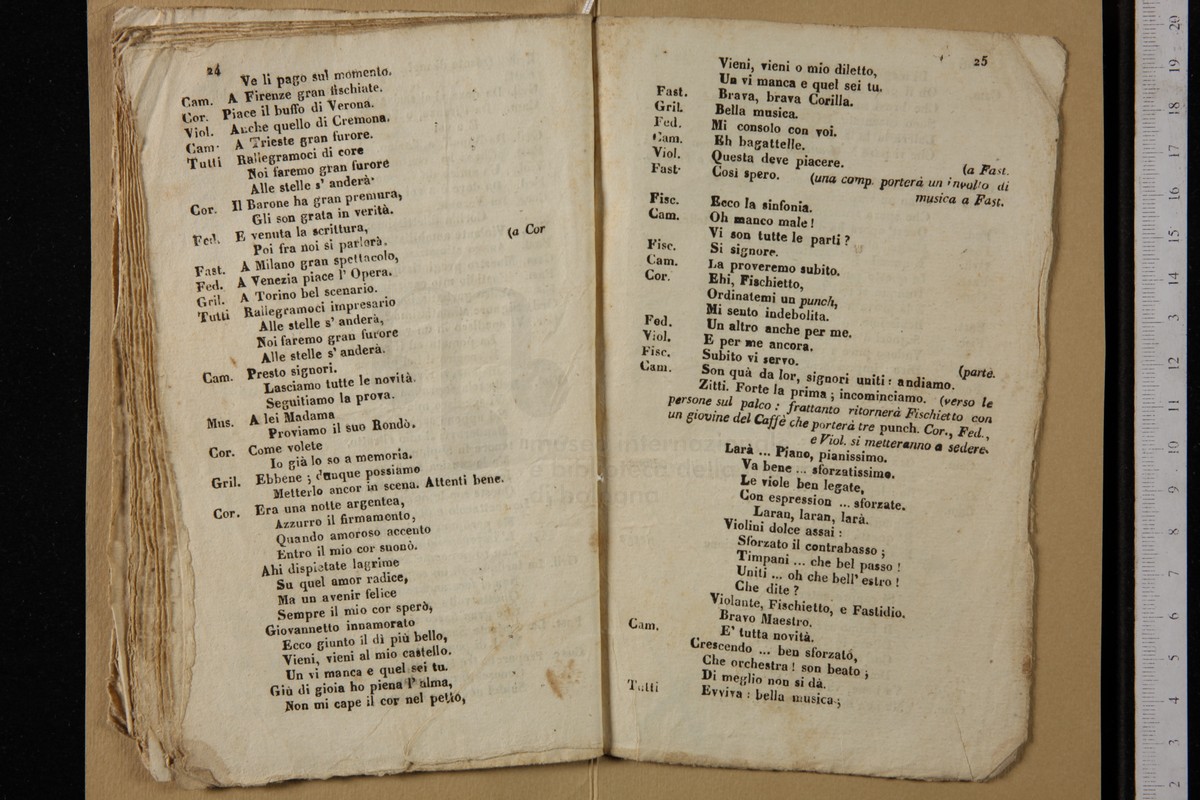 24
Ve li pago sul momento.
Cam. A Firenze gran fischiate.
Cor. Piace il buffo di Verona.
Viol. Anche quello di Cremona.
Cam. A Trieste gran furore.
Tutti Rallegramoci di core
Noi faremo gran furore
Alle stelle s' anderà.
Cor. Il Barone ha gran premura,
Gli son grata in verità.
Fed. E venuta la scrittura,
Poi fra noi si parlerà. (a Cor
Fast. A Milano gran spettacolo,
Fed. A Venezia piace l' Opera.
Gril. A Torino bel scenario.
Tutti Rallegramoci impresario
Alle stelle s' anderà,
Noi faremo gran furore
Alle stelle s' anderà.
Cam. Presto signori.
Lasciamo tutte le novità.
Seguitiamo la prova.
Mus. A lei Madama
Proviamo il suo Rondò.
Cor. Come volete
Io già lo so a memoria.
Gril. Ebbene ; dunque possiamo
Metterlo ancor in scena. Attenti bene.
Cor. Era una notte argentea,
Azzurro il firmamento,
Quando amoroso accento
Entro il mio cor suonò.
Ahi dispietate lagrime
Su quel amor radice,
Ma un avenir felice
Sempre il mio cor sperò,
Giovannetto innamorato
Ecco giunto il dì più bello,
Vieni, vieni al mio castello.
Un vi manca e quel sei tu.
Giù di gioia ho piena l' alma,
Non mi cape il cor nel petto,
25
Vieni, vieni o mio diletto,
Un vi manca e quel sei tu.
Fast. Brava, brava Corilla.
Gril. Bella musica.
Fed. Mi consolo con voi.
Cam. Eh bagattelle.
Viol. Questa deve piacere. (a Fast.
Fast. Così spero. (una comp. porterà un involto di
musica a Fast.
Fisc. Ecco la sinfonia.
Cam. Oh manco male !
Vi son tutte le parti ?
Fisc. Si signore.
Cam. La proveremo subito.
Cor. Ehi, Fischietto,
Ordinatemi un punch,
Mi sento indebolita.
Fed. Un altro anche per me.
Viol. E per me ancora.
Fisc. Subito vi servo. (parte.
Cam. Son quà da lor, signori uniti : andiamo.
Zitti. Forte la prima ; incominciamo. (verso le
persone sul palco ; frattanto ritornerà Fischietto con
un giovine del Caffè che porterà tre punch. Cor., Fed.,
e Viol. si metteranno a sedere.
Larà ... Piano, pianissimo.
Va bene ... sforzatissimo.
Le viole ben legate,
Con espression ... sforzate.
Laran, laran, larà.
Violini dolce assai :
Sforzato il contrabasso ;
Timpani ... che bel passo !
Uniti ... oh che bell' estro !
Che dite ?
Violante, Fischietto, e Fastidio.
Bravo Maestro.
Cam. E' tutta novità.
Crescendo ... ben sforzato,
Che orchestra ! son beato ;
Di meglio non si dà.
Tutti Evviva : bella musica ;
museo internazionale
e biblioteca della
di bologna
2 3 4 5 6 7 8 9 10 11 12 13 14 15 16 17 18 19 20